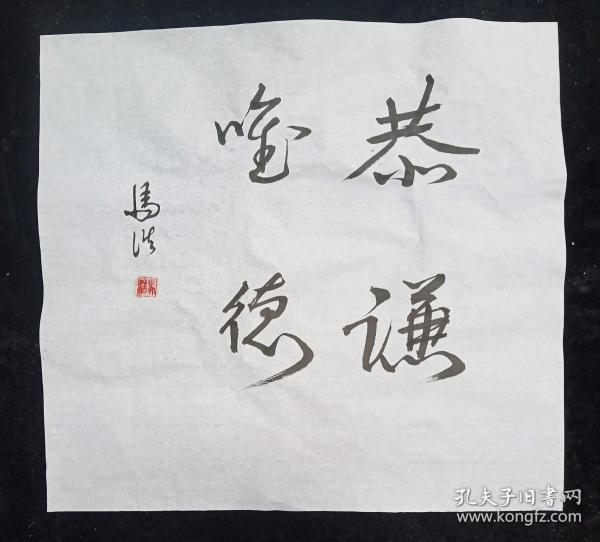 恭謙
唯德
馬浩
孔夫子旧书网
www.kongfz.com